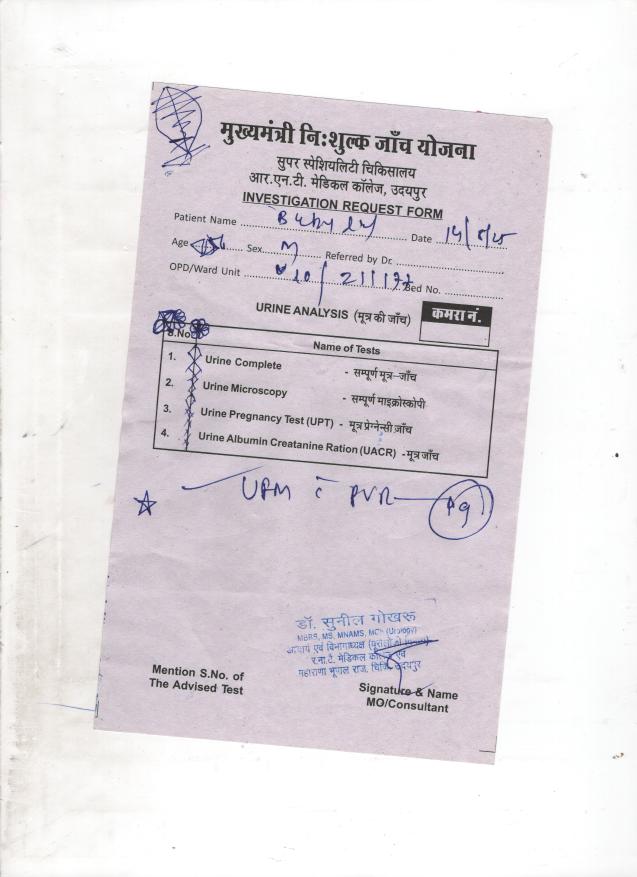 मुख्यमंत्री निःशुल्क जाँच योजना
सुपर स्पेशियलिटी चिकिसालय
आर.एन.टी. मेडिकल कॉलेज, उदयपुर
INVESTIGATION REQUEST FORM
Patient Name Date 14/
Age Sex. M Referred by Dr.
OPD/Ward Unit Bed No.
URINE ANALYSIS (मूत्र की जाँच) कमरा नं.
S.No. Name of Tests
1. Urine Complete - सम्पूर्ण मूत्र–जाँच
2. Urine Microscopy - सम्पूर्ण माइक्रोस्कोपी
3. Urine Pregnancy Test (UPT) - मूत्र प्रेग्नेन्सी जाँच
4. Urine Albumin Creatanine Ration (UACR) - मूत्र जाँच
PVR
डॉ. सुनील गोखरू
MBBS, MS, MNAMS, MCh (Urology)
र.ना.टै. मेडिकल
महाराणा भूपाल राज. उदयपुर
Mention S.No. of
The Advised Test
Signature & Name
MO/Consultant